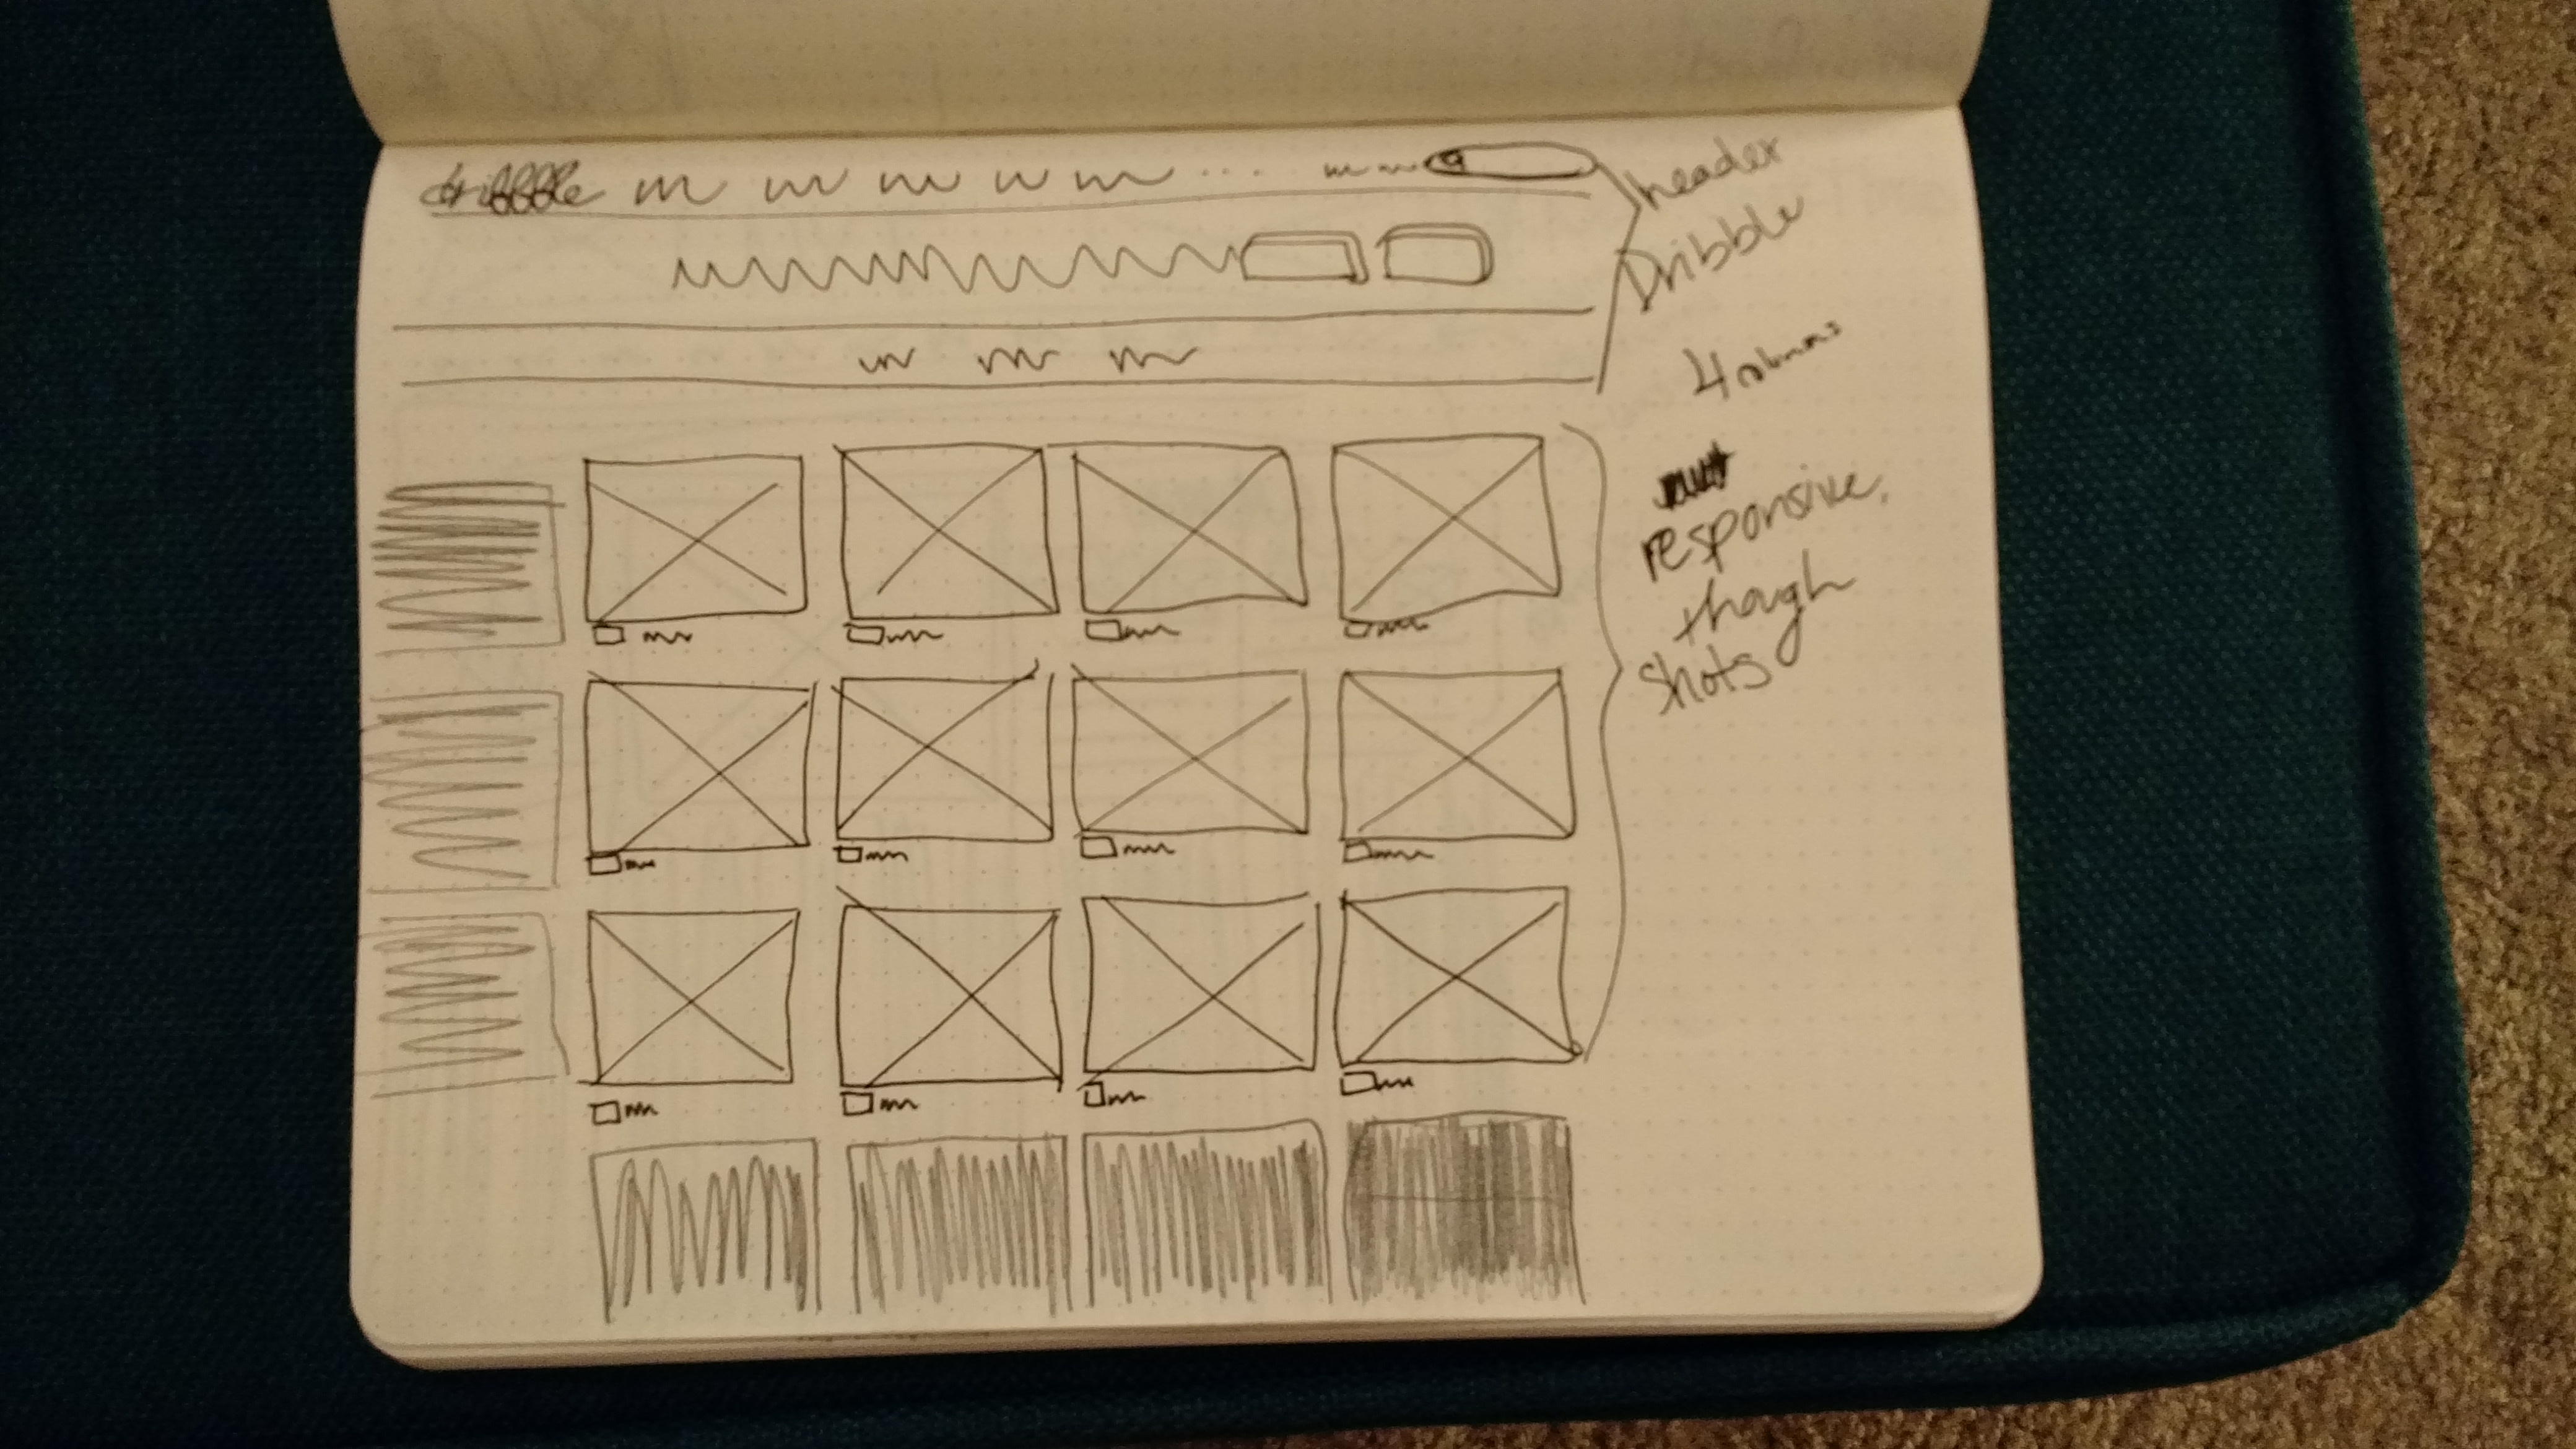 dribbble
header
Dribbble
4 columns
responsive,
though
Shots